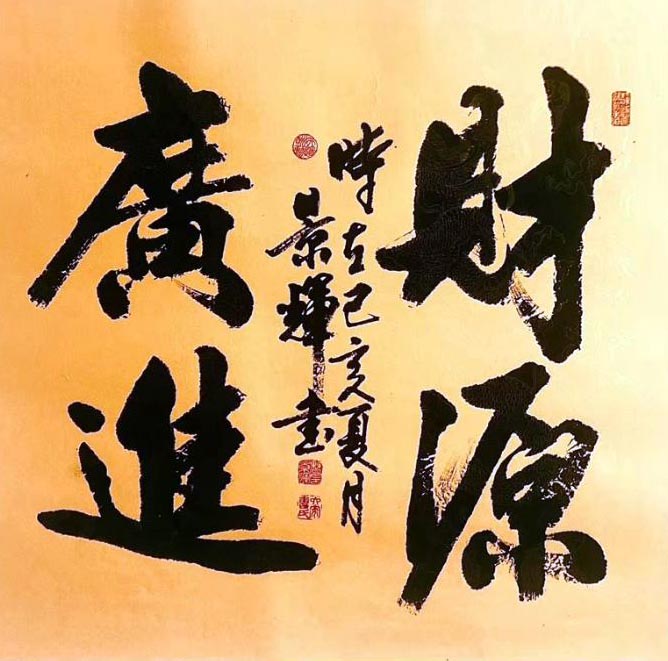 財源
廣進
時在己亥夏月
景輝書